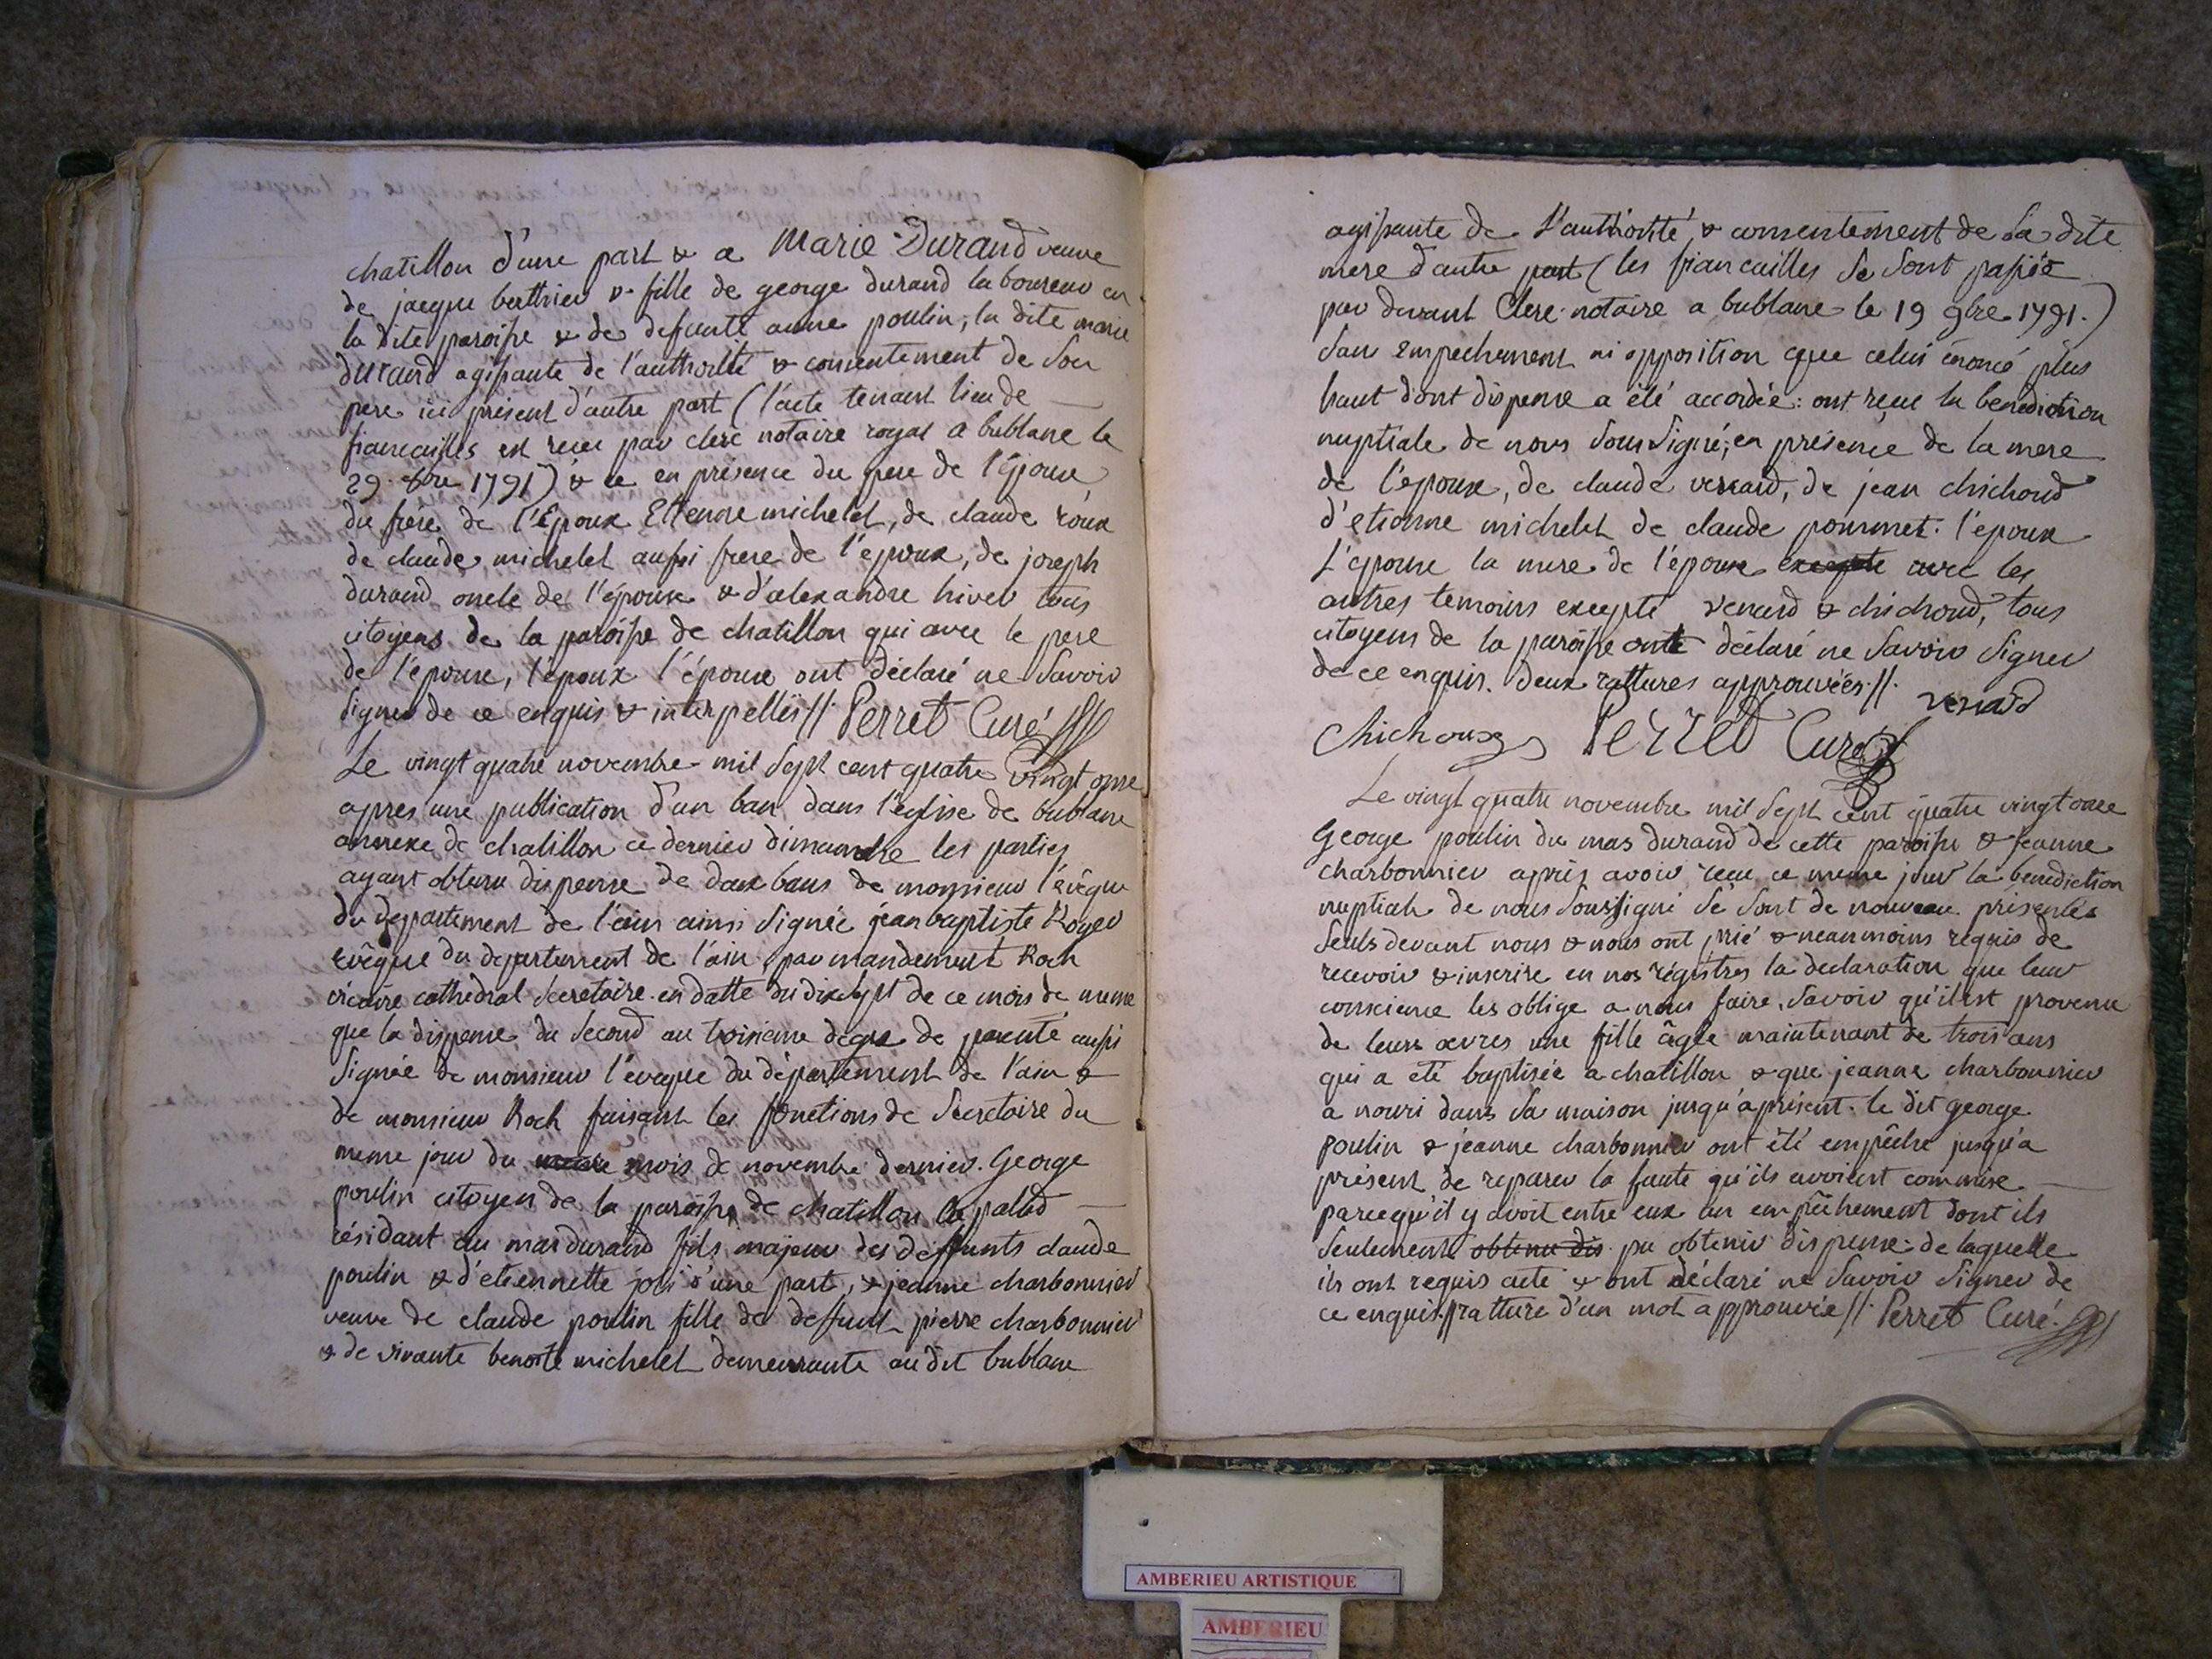 chatillon d'une part & a Marie Durand veuve
de jacque berthier & fille de george durand laboureur en
la dite paroisse & de defunte anne poulin, la dite marie
durand agissante de l'authorité & consentement de son
pere ici présent d'autre part (l'acte tenant lieu de
fiancailles est recu par clerc notaire royal a bublane le
29 1791) & ce en présence du pere de l'épouse
du frère de l'Epoux Etienne michelet, de claude roux
de claude michelet aussi frere de l'époux, de joseph
durand oncle de l'épouse & d'alexandre hiver tous
citoyens de la paroisse de chatillon qui avec le pere
de l'épouse, l'époux l'épouse ont déclaré ne Savoir
Signer de ce enquis & interpellés//. Perret Curé
Le vingt quatre novembre mil Sept cent quatre vingt onze
apres une publication d'un ban dans l'église de bublane
annexe de chatillon ce dernier dimanche les parties
ayant obtenu dispense de deux bans de monsieur l'évêque
du departement de l'ain ainsi Signée jean baptiste Royer
Evêque du departement de l'ain, par mandement Roch
vicaire cathédral Secretaire en datte du dix Sept de ce mois de meme
que la dispense du Second au troisieme degré de parenté aussi
Signée de monsieur l'évêque du département de l'ain &
de monsieur Roch faisant les fonctions de Secretaire du
meme jour du mois de novembre dernier. George
poulin citoyen de la paroisse de chatillon la palud
résidant au mas durand fils majeur des deffunts claude
poulin & d'etiennette d'une part, & jeanne charbonnier
veuve de claude poulin fille de deffunt pierre charbonnier
& de vivante benoite michelet demeurante au dit bublane
agissante de l'authorité & consentement de Sa dite
mere d'autre part (les fiancailles Se Sont passée
par devant Clerc notaire a bublane le 19 9bre 1791.)
San Empechement ni opposition que celui énoncé plus
haut dont dispense a été accordée: ont reçue la benediction
nuptiale de nous Sous Signé, en présence de la mere
de l'épouse, de claude venard, de jean chichoud
d'etienne michelet de claude pommet: l'epoux
L'epouse la mere de l'épouse excepte avec les
autres temoins excepté venard & chichoud, tous
citoyens de la paroisse ont déclaré ne Savoir Signer
de ce enquis. deux rattures approuvées//. venard
Perret Curé
Le vingt quatre novembre mil Sept cent quatre vingt onze
George poulin du mas durand de cette paroisse & jeanne
charbonnier après avoir recu ce meme jour la bénédiction
nuptiale de nous Soussigné Se Sont de nouveau présentés
Seuls devant nous & nous ont prié & neanmoins requis de
recevoir & inscrire en nos régistres la declaration que leur
conscience les oblige a nous faire, Savoir qu'il est provenu
de leurs œvres une fille âgée maintenant de trois ans
qui a eté baptisée a chatillon & que jeanne charbonnier
a nouri dans Sa maison jusqu'a présent. le dit george
poulin & jeanne charbonnier ont été empêche jusqu'a
présent de reparer la faute qu'ils avoient commise
parcequ'il y avoit entre eux un empêchement dont ils
Seulement obtenu dis pu obtenir dispense de laquelle
ils ont requis acte & ont déclaré ne Savoir Signer de
ce enquis. ratture d'un mot approuvée//. Perret Curé.
AMBERIEU ARTISTIQUE
AMBERIEU